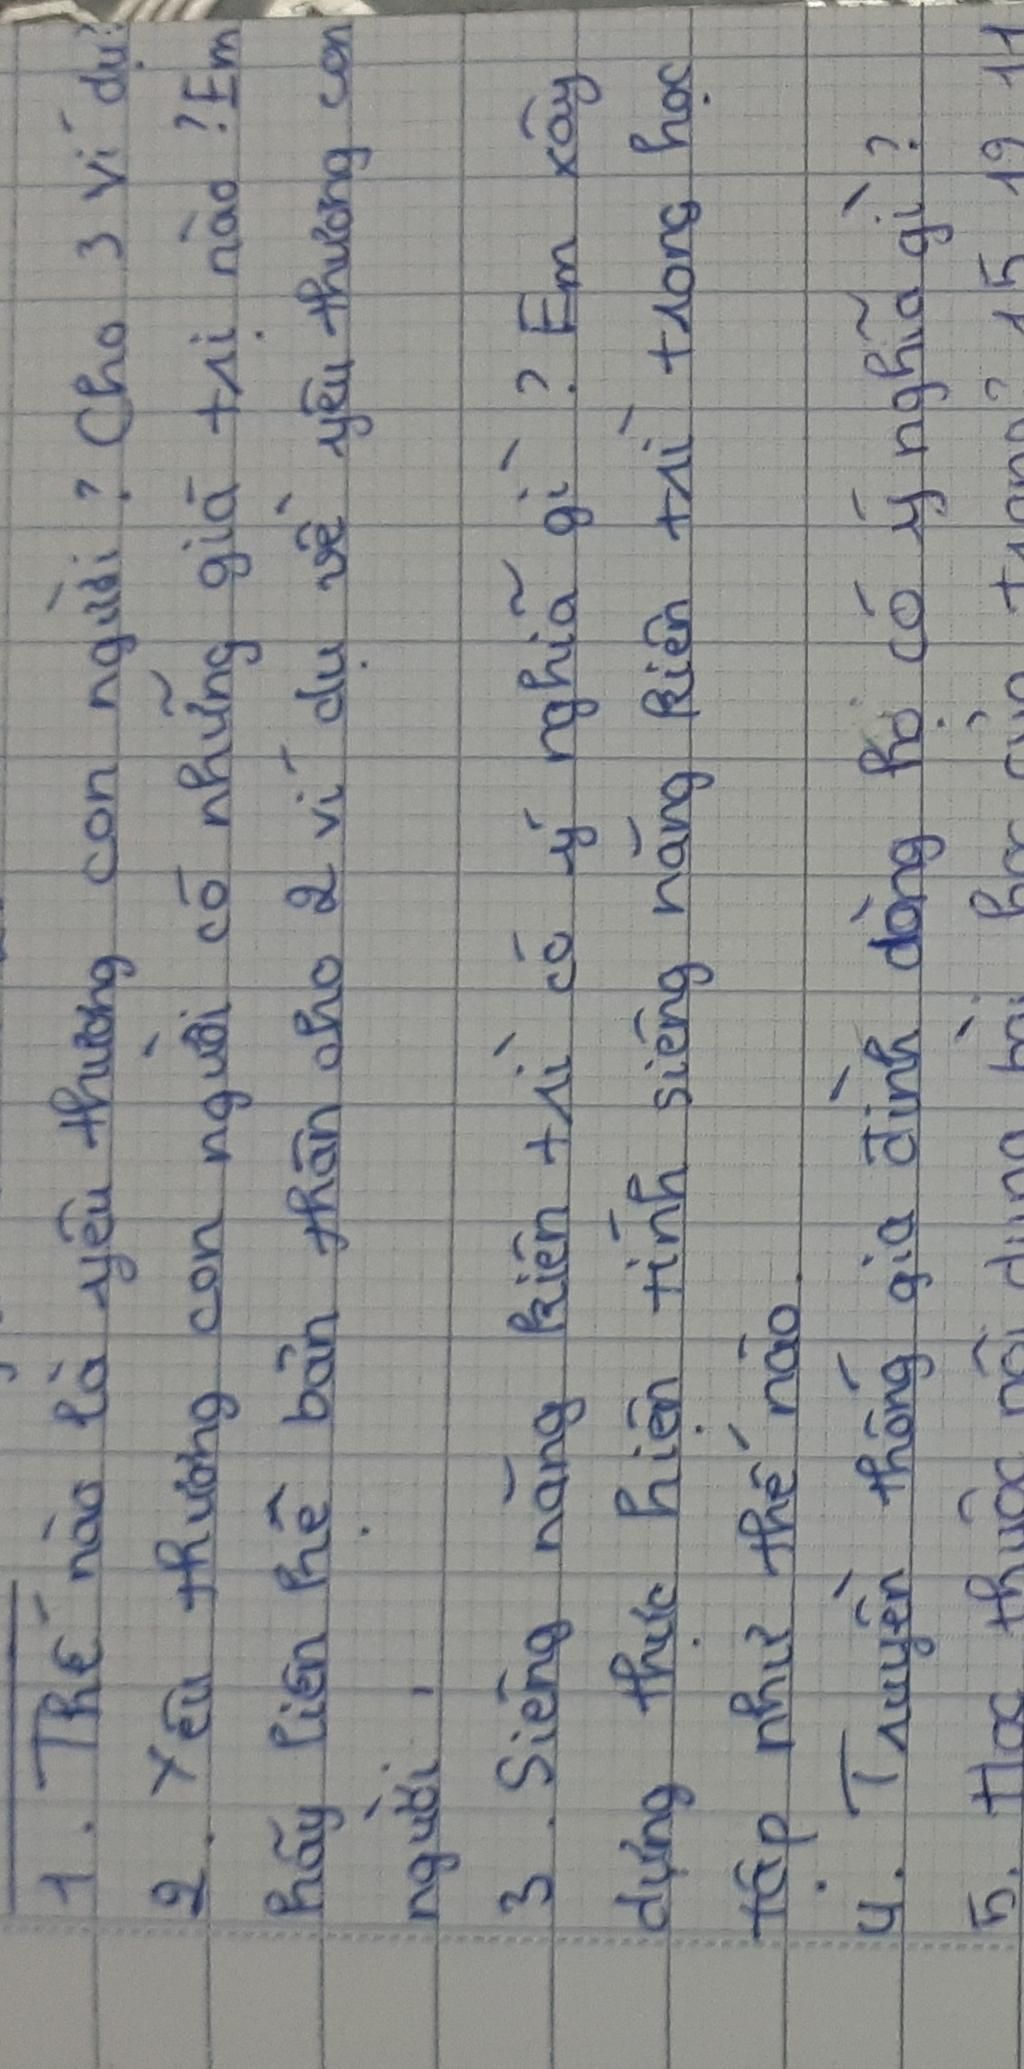 1. Thế nào là yêu thương con người? Cho 3 ví dụ?
2. Yêu thương con người có những giá trị nào? Em
hãy liên hệ bản thân cho 2 ví dụ về yêu thương con
người.
3. Siêng năng kiên trì có ý nghĩa gì? Em xây
dựng thực hiện tính siêng năng kiên trì trong học
tập như thế nào
4. Truyền thống gia đình dòng họ có ý nghĩa gì?
5. Học thuộc nội dung bài học của trang? 15 19 11